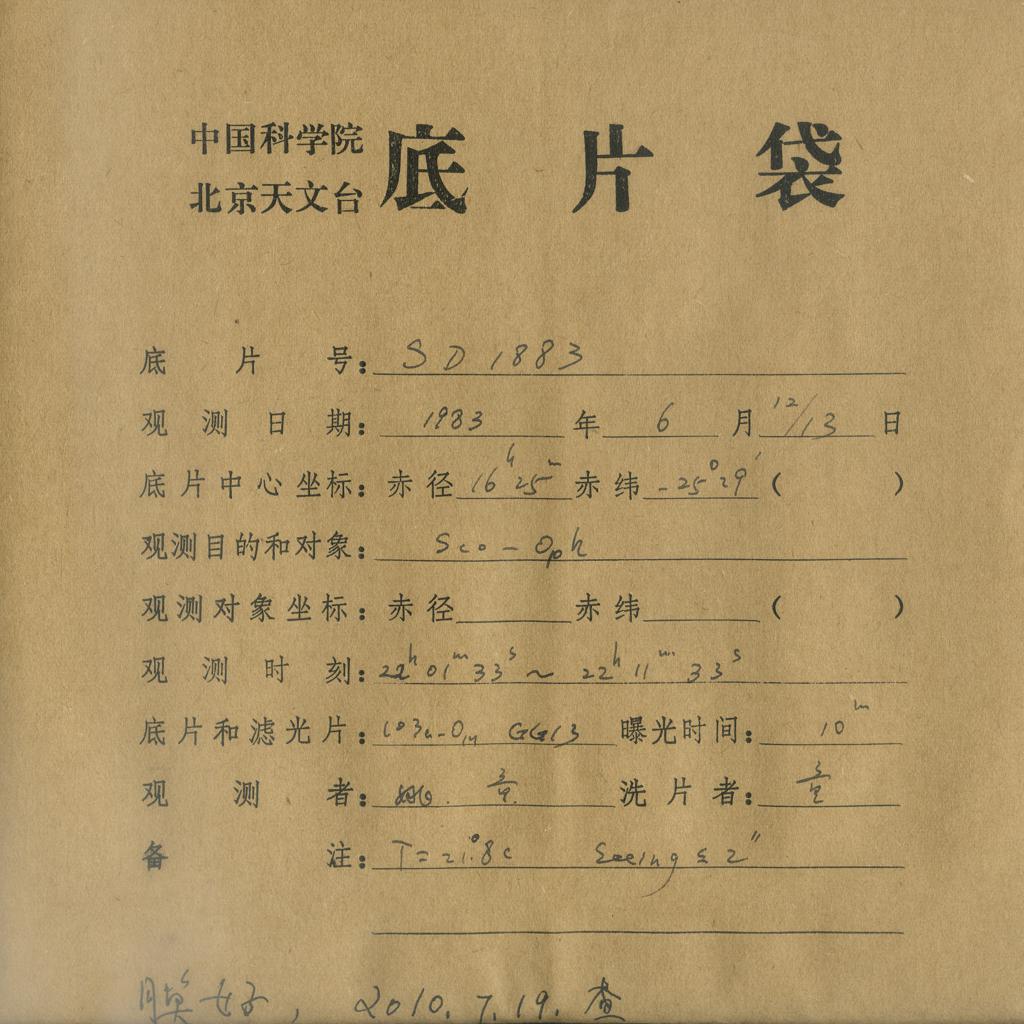 中国科学院
北京天文台
底片袋
底片号：SD 1883
观测日期：1983年6月12/13日
底片中心坐标：赤径16h25m赤纬-25°29′（ ）
观测目的和对象：Sco-Oph
观测对象坐标：赤径 赤纬 （ ）
观测时刻：22h01m33s～22h11m33s
底片和滤光片：GG13 曝光时间：10m
观测者：姚. 洗片者：
备注：T=21°.8c Seeing≤2″
膜好，2010.7.19.查